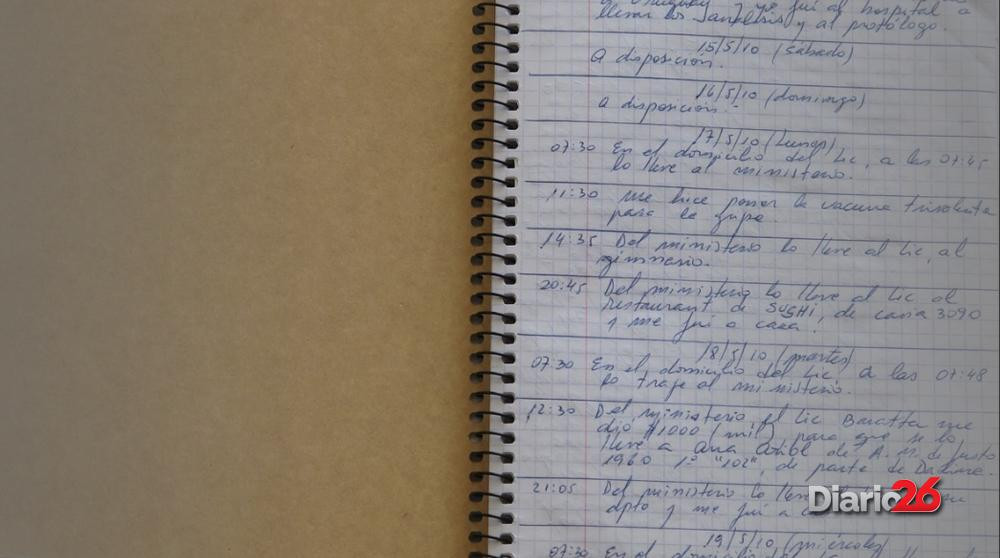 a Uruguay y yo fui al hospital a
llevar los analisis y al protólogo.
15/5/10 (sábado)
A disposición.
16/5/10 (domingo)
a disposición.-
17/5/10 (Lunes)
07:30 En el domicilio del Lic, a las 07:45
lo lleve al ministerio.
11:30 me hice poner la vacuna
para la gripe.
14:35 Del ministerio lo lleve al Lic, al
gimnasio.
20:45 Del ministerio lo lleve al Lic al
restaurant de SUSHI, de casia 3090
y me fui a casa.
18/5/10 (martes)
07:30 En el domicilio del Lic, a las 07:48
lo traje al ministerio.
12:30 Del ministerio, el Lic Baratta me
dió $1000 (mil) para que se lo
lleve a Ana de A. M. de Justo
1960 1º "102", de parte de
21:05 Del ministerio lo lleve
dpto y me fui a
19/5/10 (miércoles)
07:30 En el domicilio
Diario26